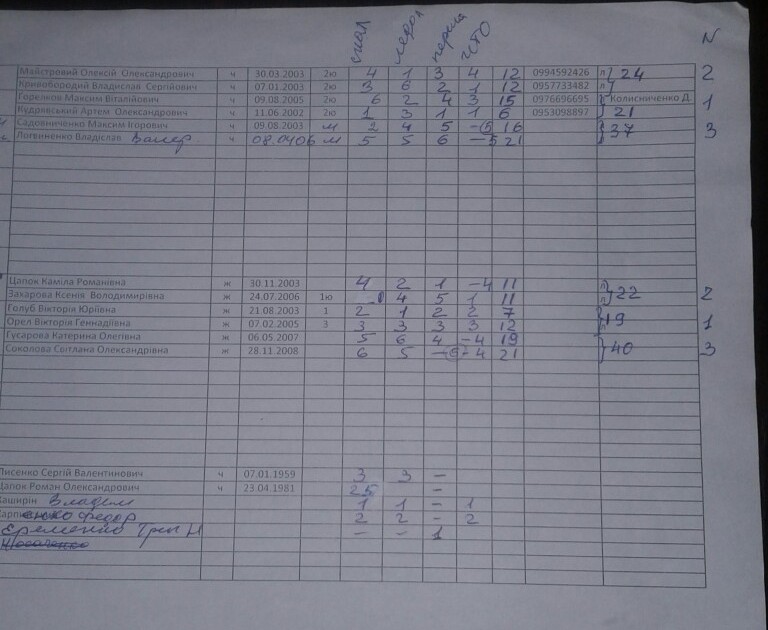 скал ледол перила ГСТО N
Майстровий Олексій Олександрович ч 30.03.2003 2ю 4 1 3 4 12 0994592426 л } 24 2
Кривобородий Владислав Сергійович ч 07.01.2003 2ю 3 6 2 1 12 0957733482 л
Горелков Максим Віталійович ч 09.08.2005 2ю 6 2 4 3 15 0976696695 Колисниченко Д. 1
Кудрявський Артем Олександрович ч 11.06.2002 2ю 1 3 1 1 6 0953098897 } 21
Садовниченко Максим Ігорович ч 09.08.2003 м 2 4 5 -5 16 } 37 3
Логвиненко Владіслав Валер ч 08.0406 м 5 5 6 -5 21
Цапок Каміла Романівна ж 30.11.2003 4 2 1 -4 11 л } 22 2
Захарова Ксенія Володимирівна ж 24.07.2006 1ю 4 5 1 11 л
Голуб Вікторія Юріївна ж 21.08.2003 1 2 1 2 2 7 } 19 1
Орел Вікторія Геннадіївна ж 07.02.2005 3 3 3 3 3 12
Гусарова Катерина Олегівна ж 06.05.2007 5 6 4 -4 19 } 40 3
Соколова Світлана Олександрівна ж 28.11.2008 6 5 -6 -4 21
Лисенко Сергій Валентинович ч 07.01.1959 3 3 -
Цапок Роман Олександрович ч 23.04.1981 25 -
Каширін Владим 1 1 - 1
Карпенко Федор 2 2 - 2
Еременко - - 1